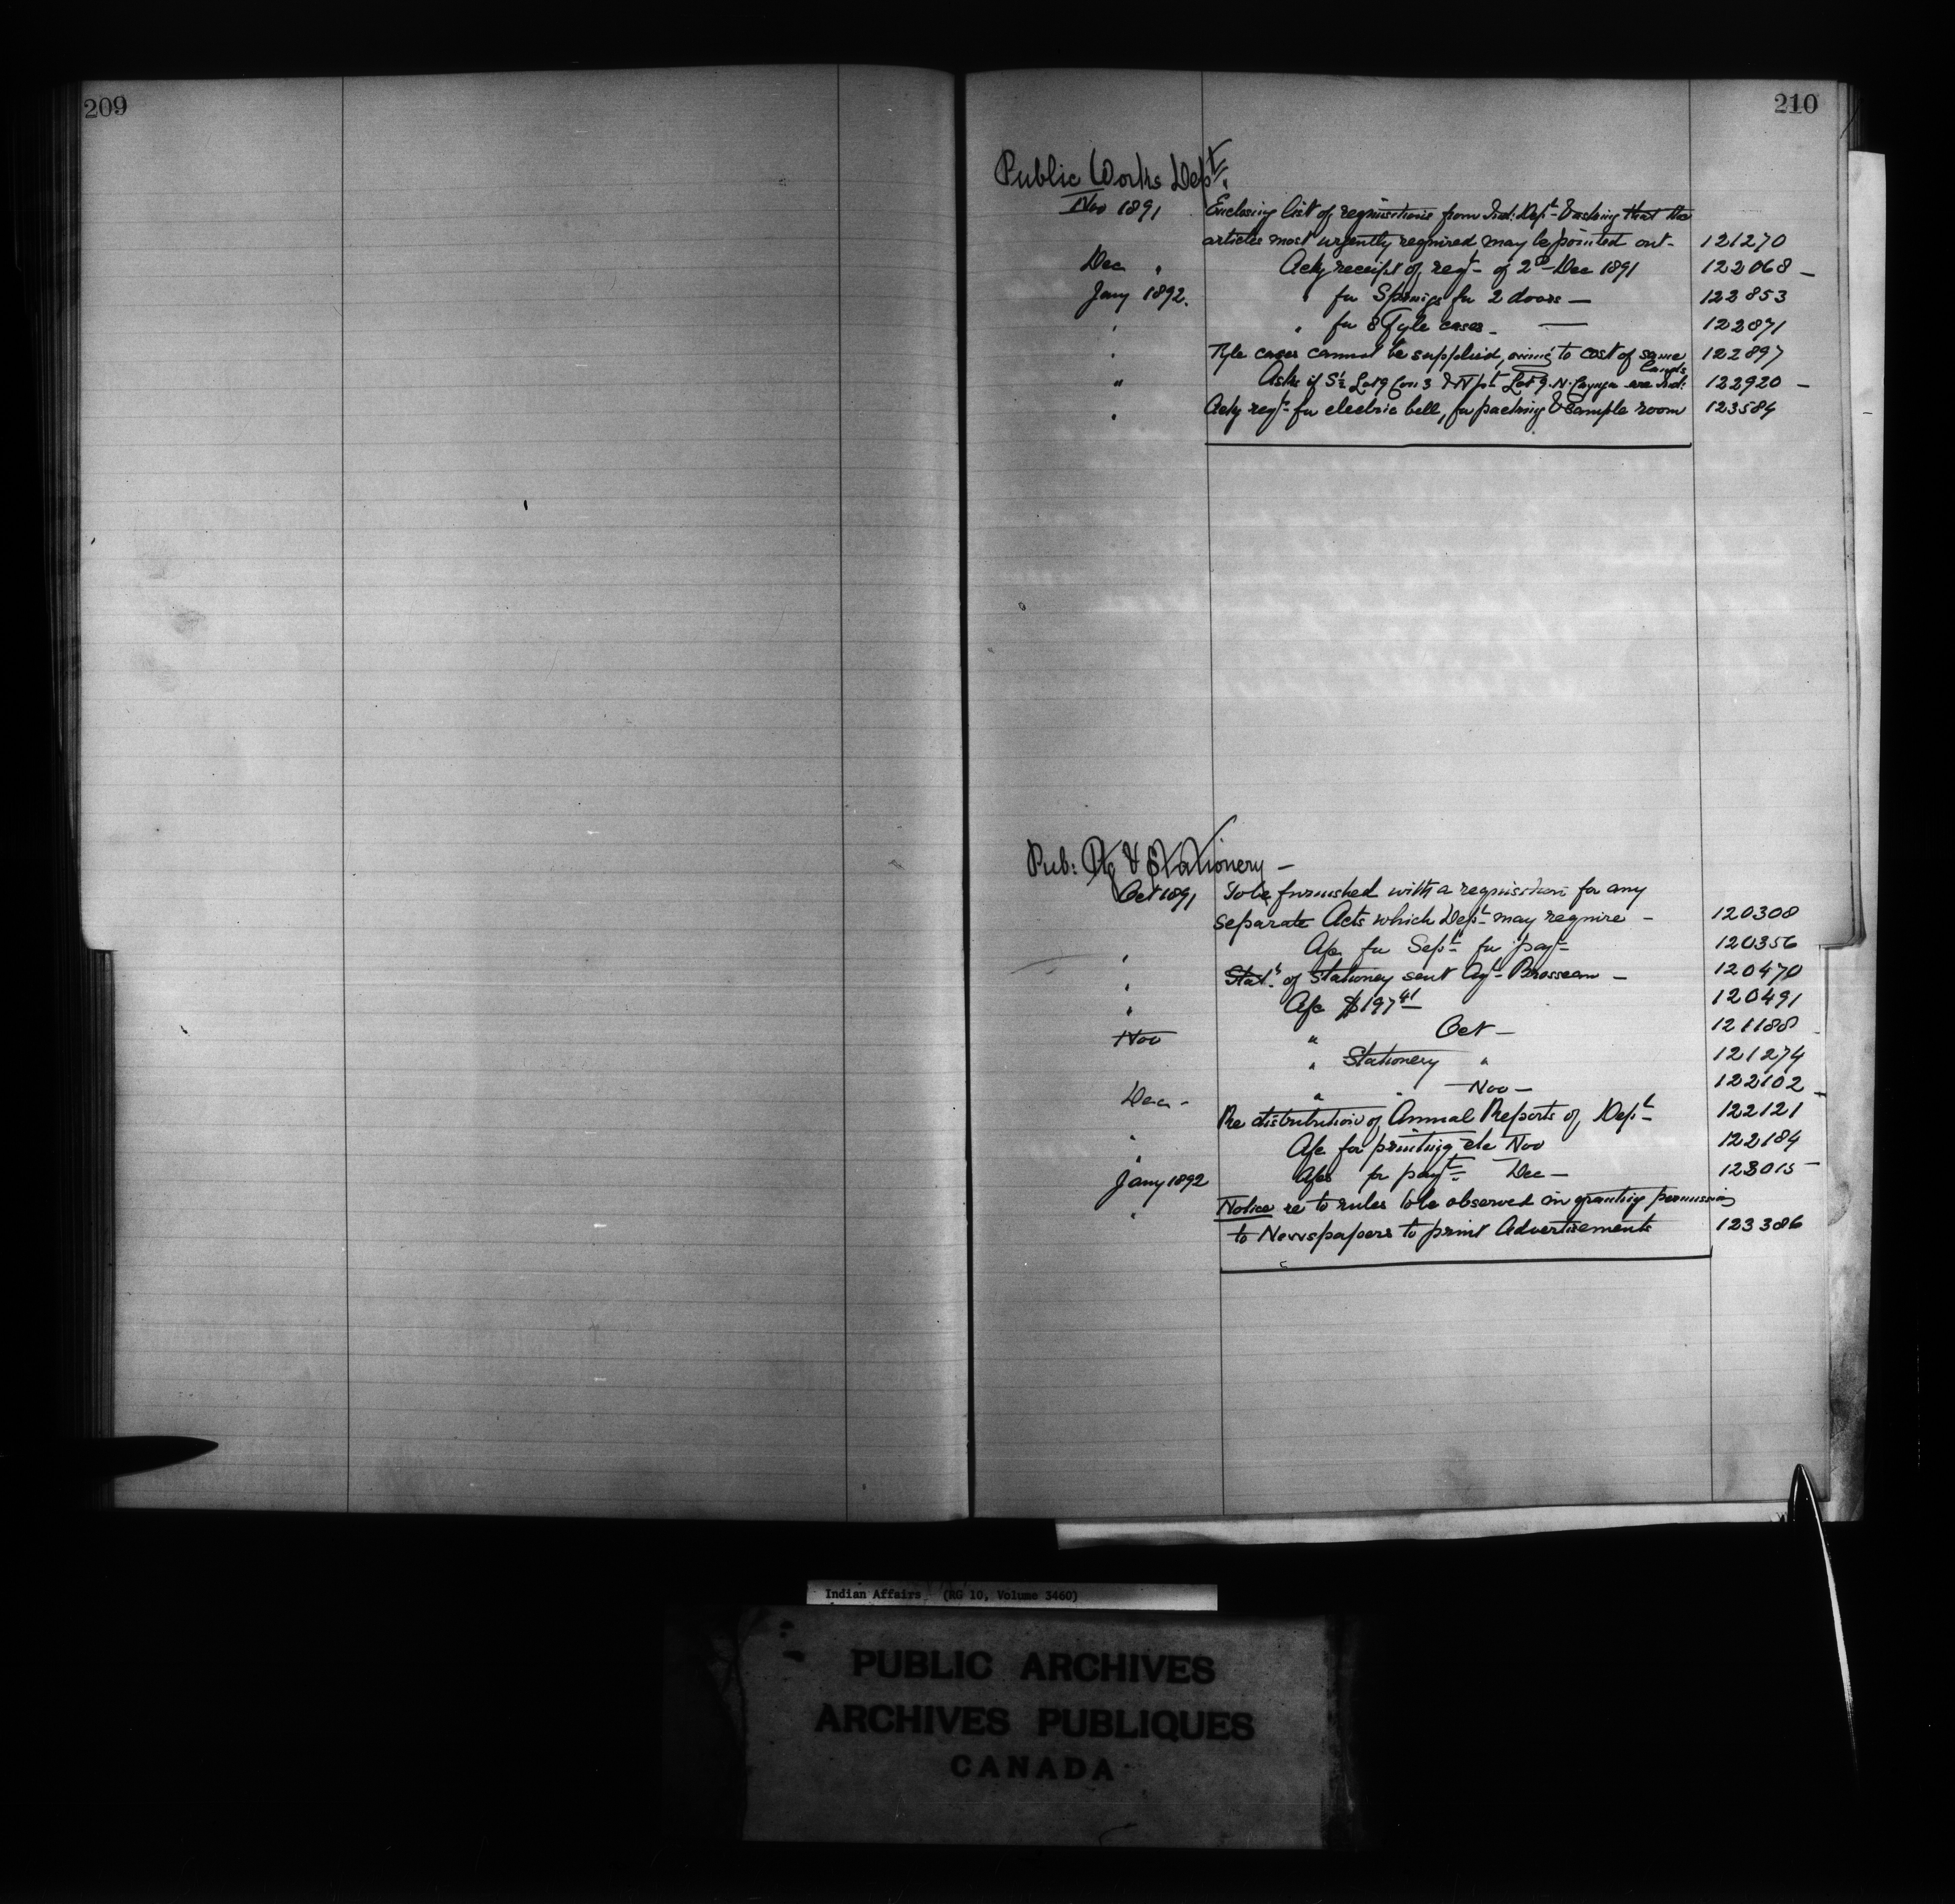 209
210
Public Works Dept.
Nov 1891 Enclosing list of requisitions from Ind: Dept & asking that the
articles most urgently required may be pointed out- 121270
Dec " Ackg receipt of reqt of 2d Dec 1891 122068 -
Jany 1892. " for Springs for 2 doors — 122853
" " for 8 Fyle cases - — 122871
" Fyle cases cannot be supplied, owing to cost of same 122897
Lands
" Asks if S½ Lot 9 Con 3 & N pt Lot 9 - N. Cayuga are Ind: 122920 -
" Ackg reqt for electric bell, for packing & Sample room 123584
Pub: Pg & Stationery -
Oct 1891 To be furnished with a requisition for any
separate Acts which Dept may require - 120308
" A/c for Sept for payt 120356
" Statt of Stationery sent Agt Brosseau - 120470
" A/c $197 41 120491
Nov " Oct - 121188
" Stationery " 121274
Dec - " " Nov - 122102 -
" Re distribution of Annual Reports of Dept 122121
" A/c for printing etc Nov 122184
Jany 1892 A/cs for payt Dec - 123015 -
" Notice re to rules to be observed in granting permission
to Newspapers to print Advertisements 123386
Indian Affairs (RG 10, Volume 3460)
PUBLIC ARCHIVES
ARCHIVES PUBLIQUES
CANADA